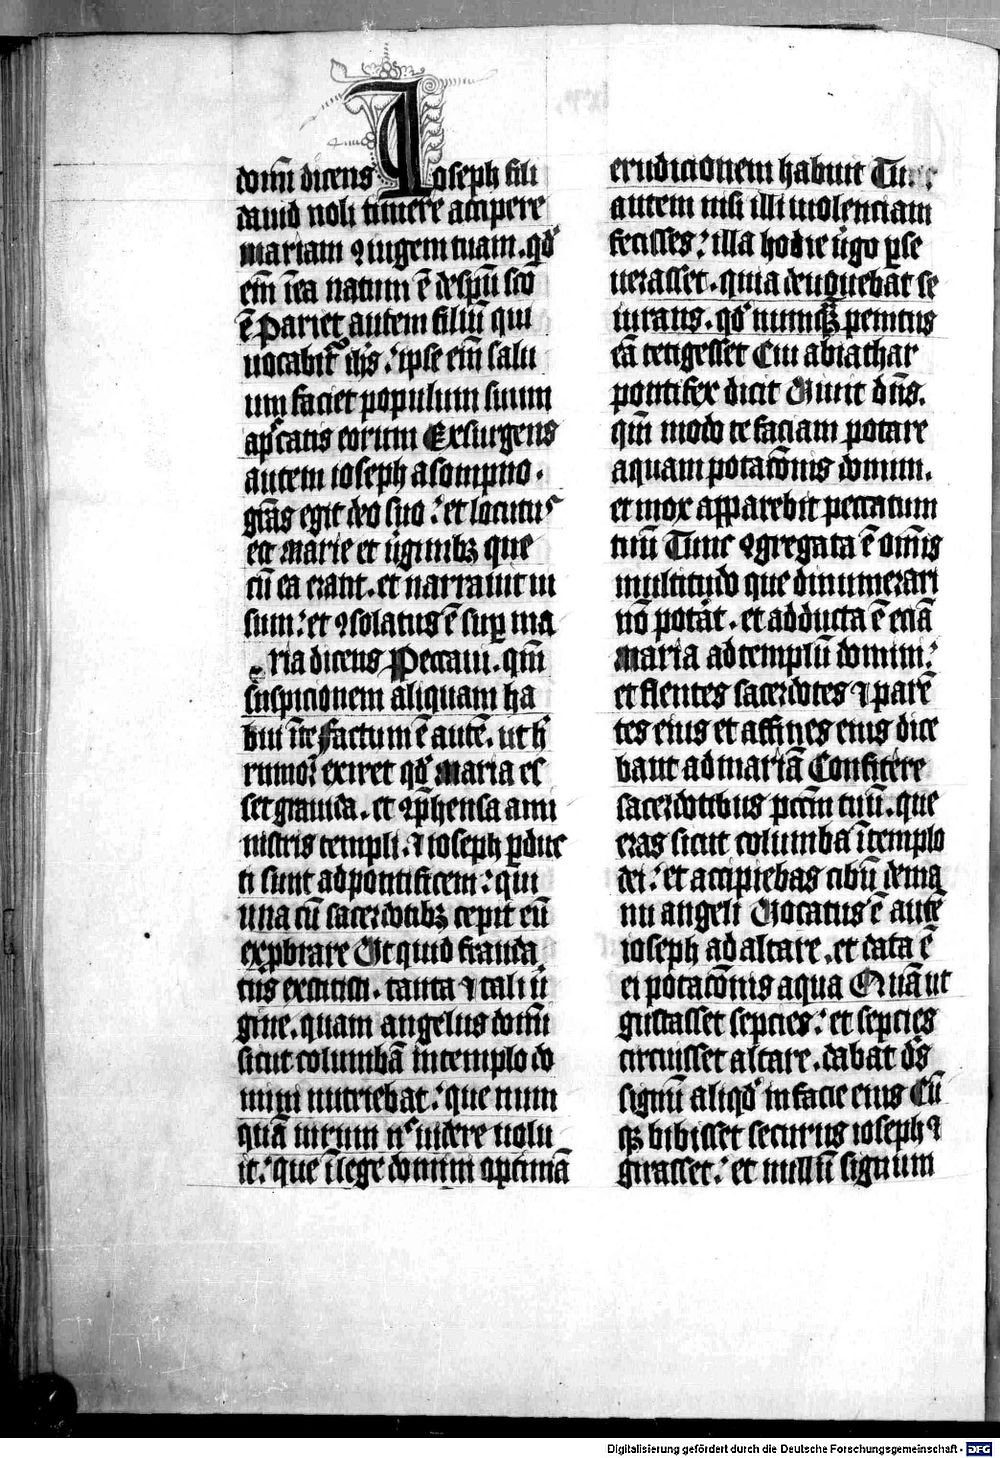 domi̅ dicens Ioseph fili
dauid noli timere accipere
mariam ꝯiugem tuam. qd̕
em̅ i̅ ea natum e̅ de spu̅ sc̅o
e̅ Pariet autem filiu̅ qui
uocabit̕ ih̅s ⁊ ipse em̅ salu
um faciet populum suum
a pc̅catis eorum Exsurgens
autem ioseph a sompno .
gr̅as egit deo suo ⁊ et locutus
est marie et u̅ginibꝫ que
cu̅ ea erant . et narrauit ui
sum ⁊ et ꝯsolatus e̅ sup̲ ma
ria dicens Peccaui . qm̅
suspicionem aliquam ha
bui i̅ te Factum e̅ aute̅ . ut h̕
rumor exiret qd̕ maria es
set grauida . et ꝯp̅hensa a mi
nistris templi . ⁊ ioseph ꝑduc
ti sunt ad pontificem ⁊ qui
una cu̅ sacerdotibꝫ cepit eu̅
exꝓbrare Ut quid frauda
tus es
tanta ⁊ tali u̅
gine . quam angelus domi̅
sicut columba̅ in templo do
mini nutriebat ⁊ que num
qua̅ uirum n̕ uidere uolu
it ⁊ que i̅ lege domini optima̅
erudicionem habuit Tu
autem nisi illi uiolenciam
fecisses ⁊ illa hodie u̅go ꝑse
uerasset . quia deuouebat se
iurans . qd̕ numqꝫ penitus
ea̅ tetigesset Cui abiathar
pontifex dicit Uiuit dn̅s .
qm̅ modo te faciam potare
aquam potac̅onis domini .
et mox apparebit peccatum
tuu̅ Tunc ꝯgregata e̅ om̅is
multitudo que dinumerari
no̅ pot̕at . et adducta e̅ ecia̅
maria ad templu̅ domini ⁊
et flentes sacerdotes ⁊ pare̅
tes eius et affines eius dice
bant ad maria̅ Confitere
sacerdotibus pc̅cm tuu̅ . que
eras sicut columba i̅ templo
dei ⁊ et accipiebas cibu̅ de ma
nu angeli Uocatus e̅ aute̅
ioseph ad altare . et data e̅
ei potac̅onis aqua Qua̅ ut
gustasset sepcies ⁊ et sepcies
circuisset altare . dabat d̅s
signu̅ aliqd̕ in facie eius Cu̅
qꝫ bibisset securus ioseph ⁊
girasset ⁊ et nullu̅ signum
Digitalisierung gefördert durch die Deutsche Forschungsgemeinschaft - DFG